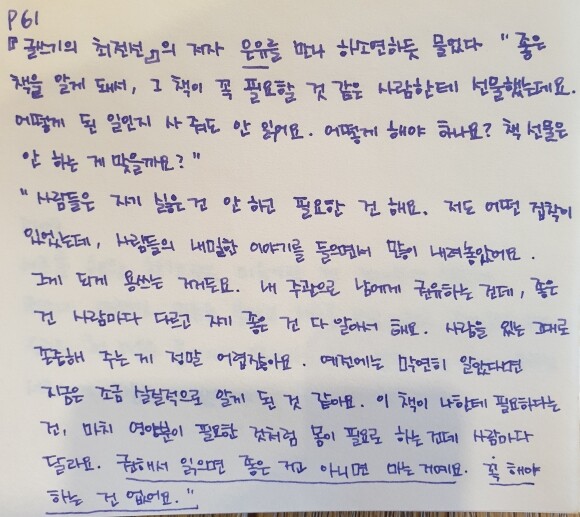 P61
『글쓰기의 최전선』의 저자 은유를 만나 하소연하듯 물었다 "좋은
책을 알게 돼서, 그 책이 꼭 필요할 것 같은 사람한테 선물했는데요.
어떻게 된 일인지 사 줘도 안 읽어요. 어떻게 해야 하나요? 책 선물은
안 하는 게 맞을까요?"
"사람들은 자기 싫은 건 안 하고 필요한 건 해요. 저도 어떤 집착이
있었는데, 사람들의 내밀한 이야기를 들으면서 많이 내려놓았어요.
그게 되게 용쓰는 거거든요. 내 주관으로 남에게 권유하는 건데, 좋은
건 사람마다 다르고 자기 좋은 건 다 알아서 해요. 사람을 있는 그대로
존중해 주는 게 정말 어렵잖아요. 예전에는 막연히 알았다면
지금은 조금 실질적으로 알게 된 것 같아요. 이 책이 나한테 필요하다는
건, 마치 영양분이 필요한 것처럼 몸이 필요로 하는 건데 사람마다
달라요. 권해서 읽으면 좋은 거고 아니면 마는 거예요. 꼭 해야
하는 건 없어요."